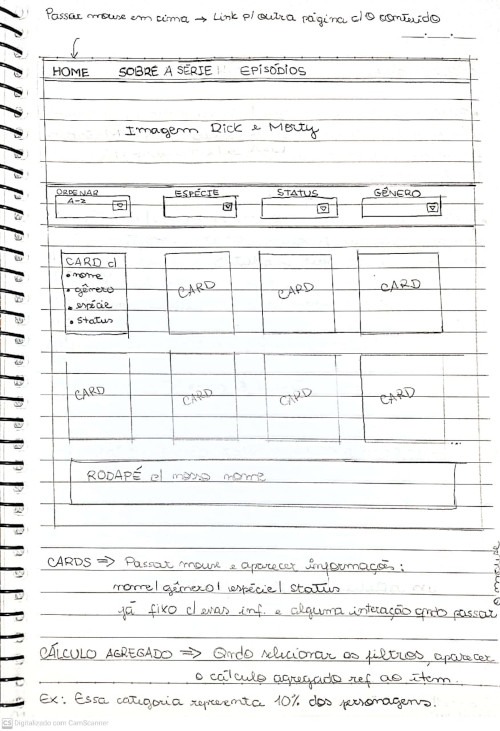 Passar mouse em cima → Link p/ outra página c/ o conteúdo
HOME SOBRE A SÉRIE EPISÓDIOS
Imagem Rick e Morty
ORDENAR ESPÉCIE STATUS GÊNERO
A-Z
CARD c/
• nome
• gênero
• espécie
• status
CARD CARD CARD
CARD CARD CARD CARD
...
RODAPÉ c/ nosso nome
CARDS => Passar mouse e aparecer informações:
nome/ gênero/ espécie/ status
já fixo c/ essas inf. e alguma interação qndo passar
o mouse
CÁLCULO AGREGADO => Qndo selecionar os filtros, aparecer
o cálculo agregado ref ao item.
Ex: Essa categoria representa 10% dos personagens.
CS Digitalizado com CamScanner